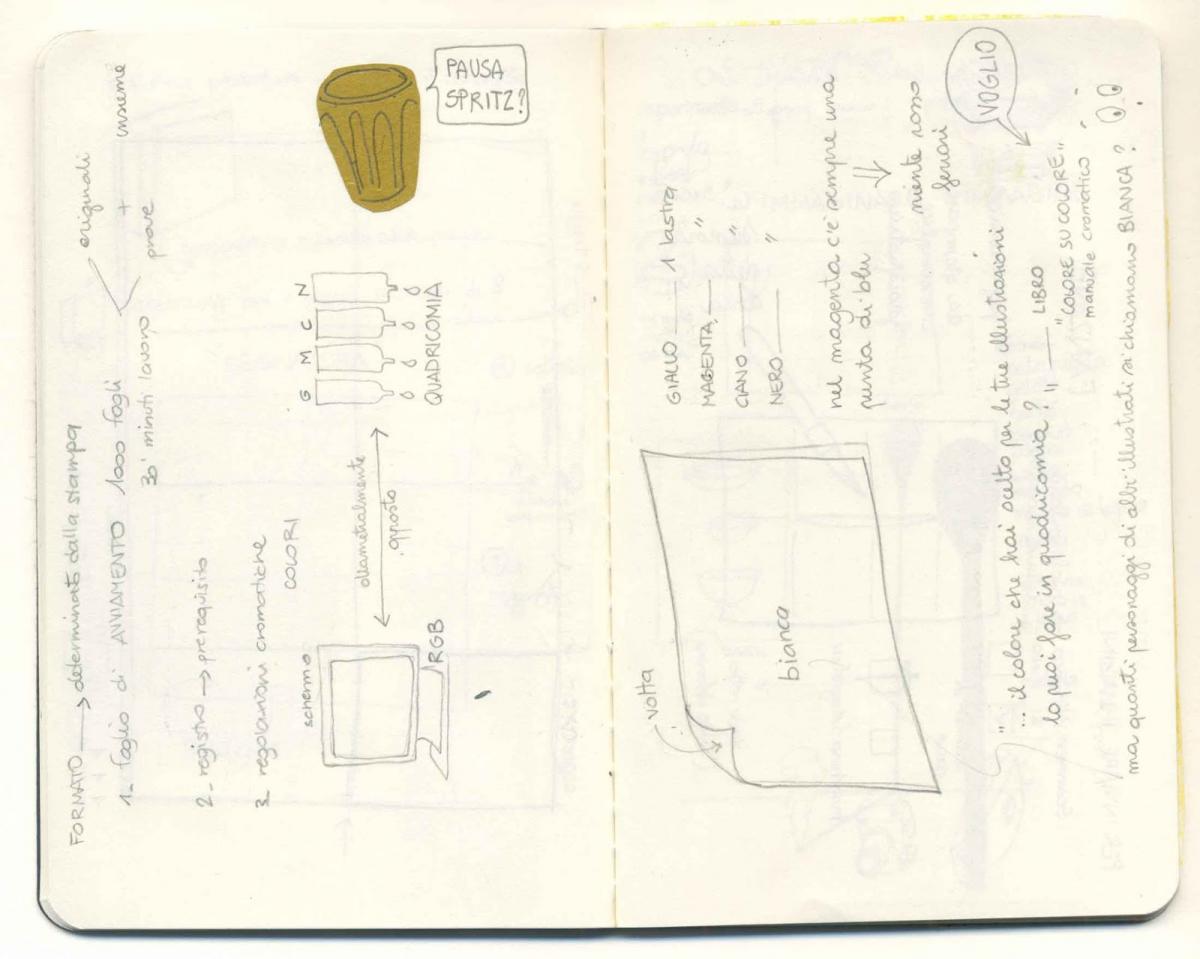 FORMATO → determinato dalla stampa
originali
1_ foglio di AVVIAMENTO 1000 fogli + insieme
30' minuti lavoro prove
2_ registro → prerequisito
3_ regolazioni cromatiche
COLORI
schermo
RGB
diametralmente
opposto
G M C N
QUADRICOMIA
PAUSA
SPRITZ?
volta
bianca
GIALLO 1 lastra
MAGENTA "
CIANO "
NERO "
nel magenta c'è sempre una
punta di blu ⇒
niente rosso
ferrari
"... il colore che hai scelto per le tue illustrazioni
lo puoi fare in quadricomia?"
VOGLIO
LIBRO
"COLORE SU COLORE"
manuale cromatico
ma quanti personaggi di albi illustrati si chiamano BIANCA?